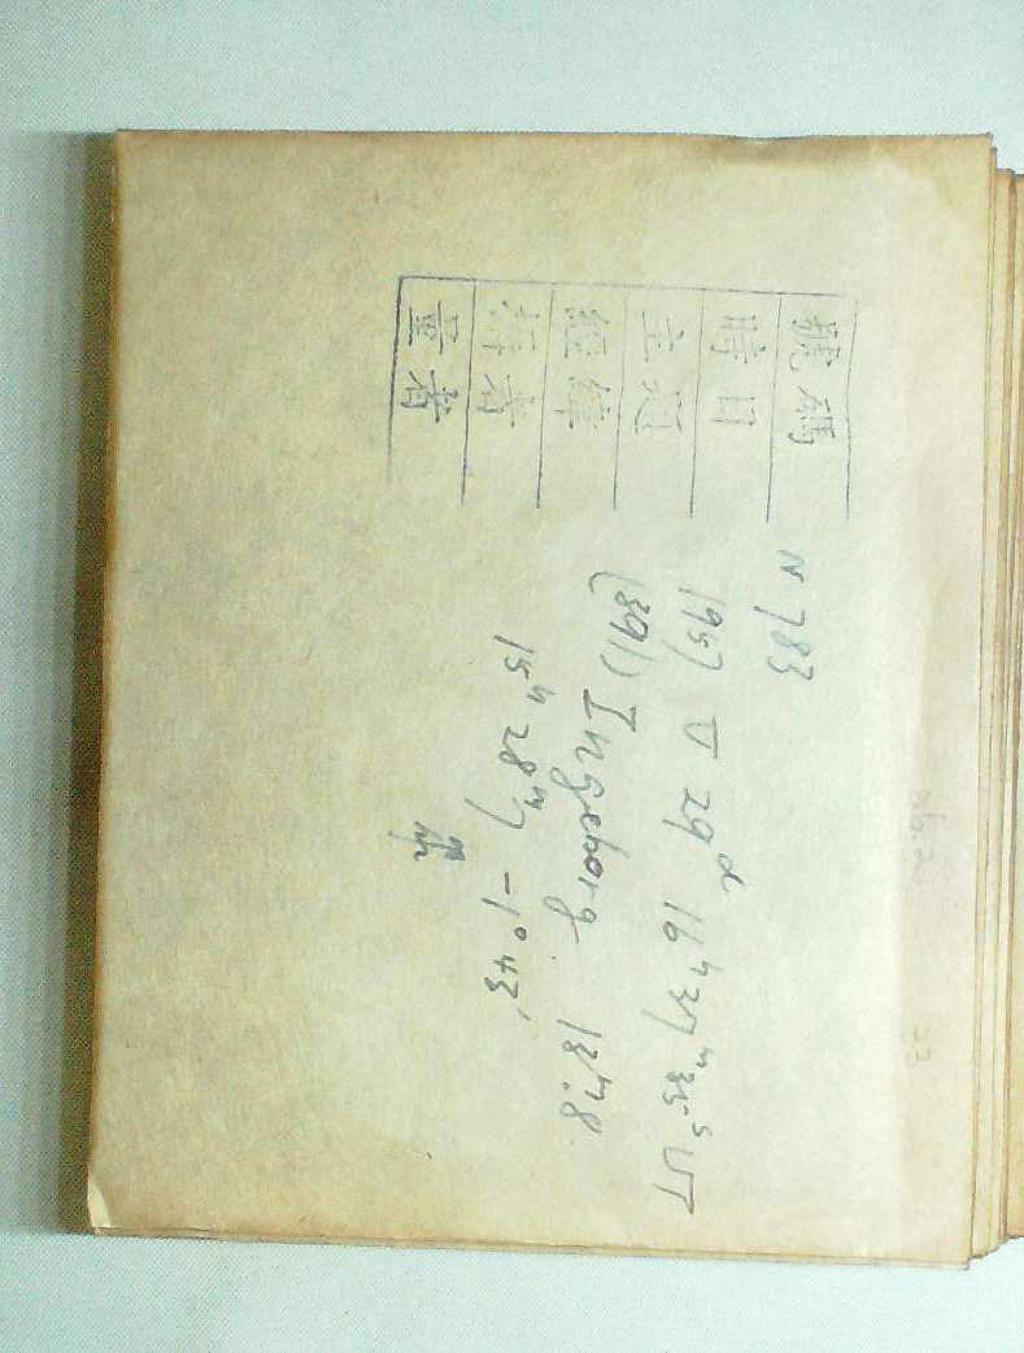 號碼 N 783
時日 1957 V 29ᵈ 16ʰ 37ᵐ 35ˢ UT
(391) Ingeborg 13ᵐ.8
經緯 15ʰ 28ᵐ7 -1° 43′
者
量者